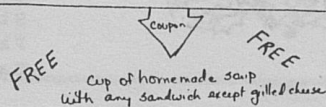 Coupon
FREE FREE
Cup of homemade soup
with any sandwich except grilled cheese